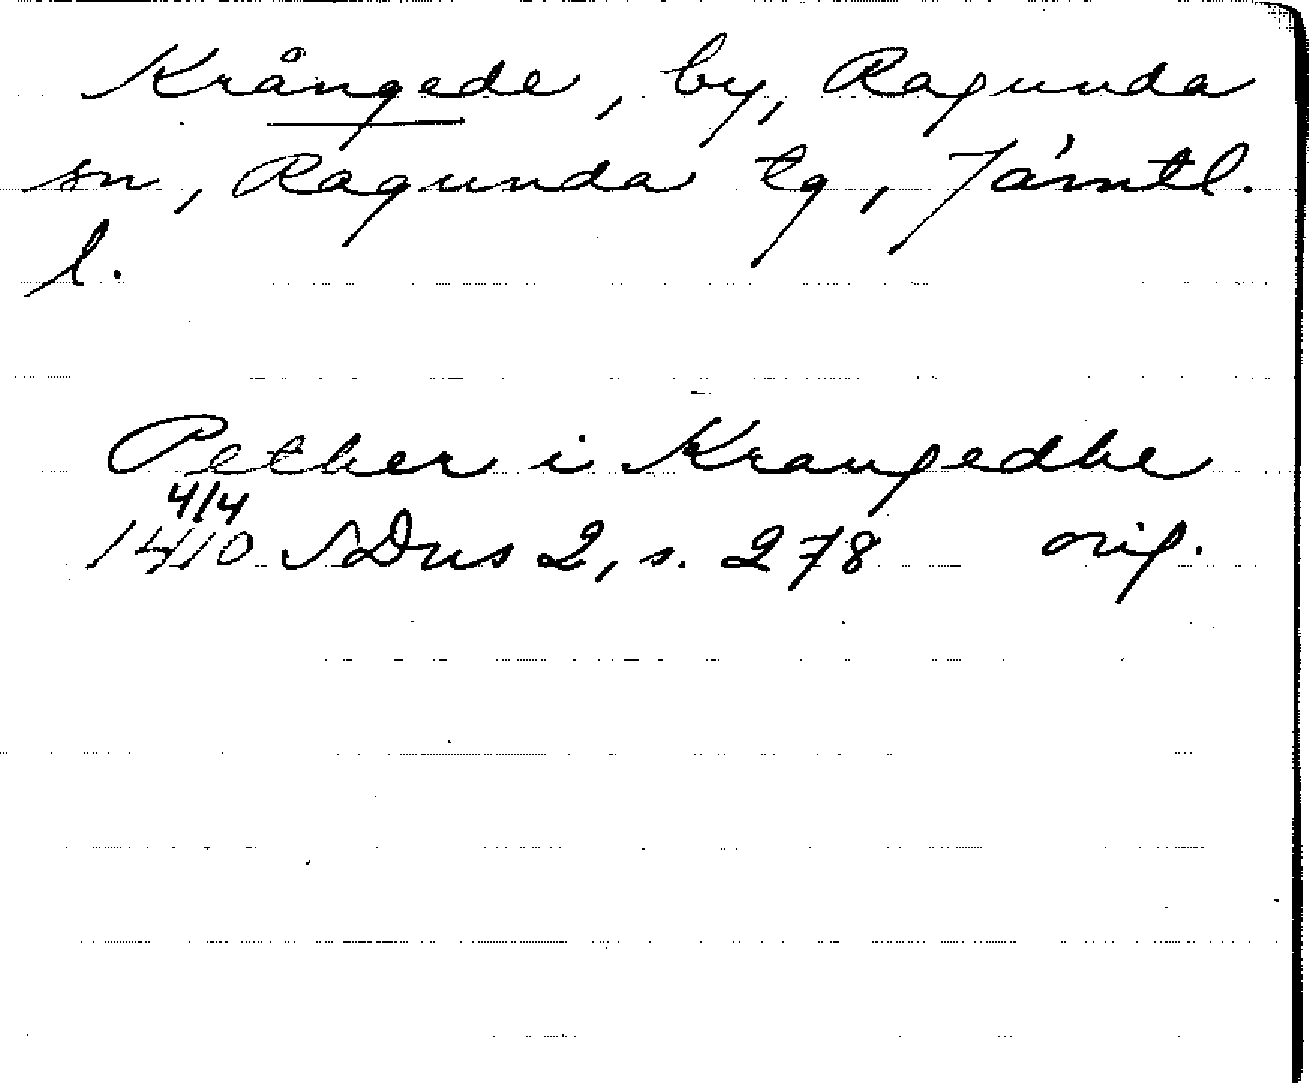 Krångede, by, Ragunda
sn, Ragunda tg, Jämtl.
l.
Pether i Krangedhe
4/4
1410 SDns 2, s. 278 orig.